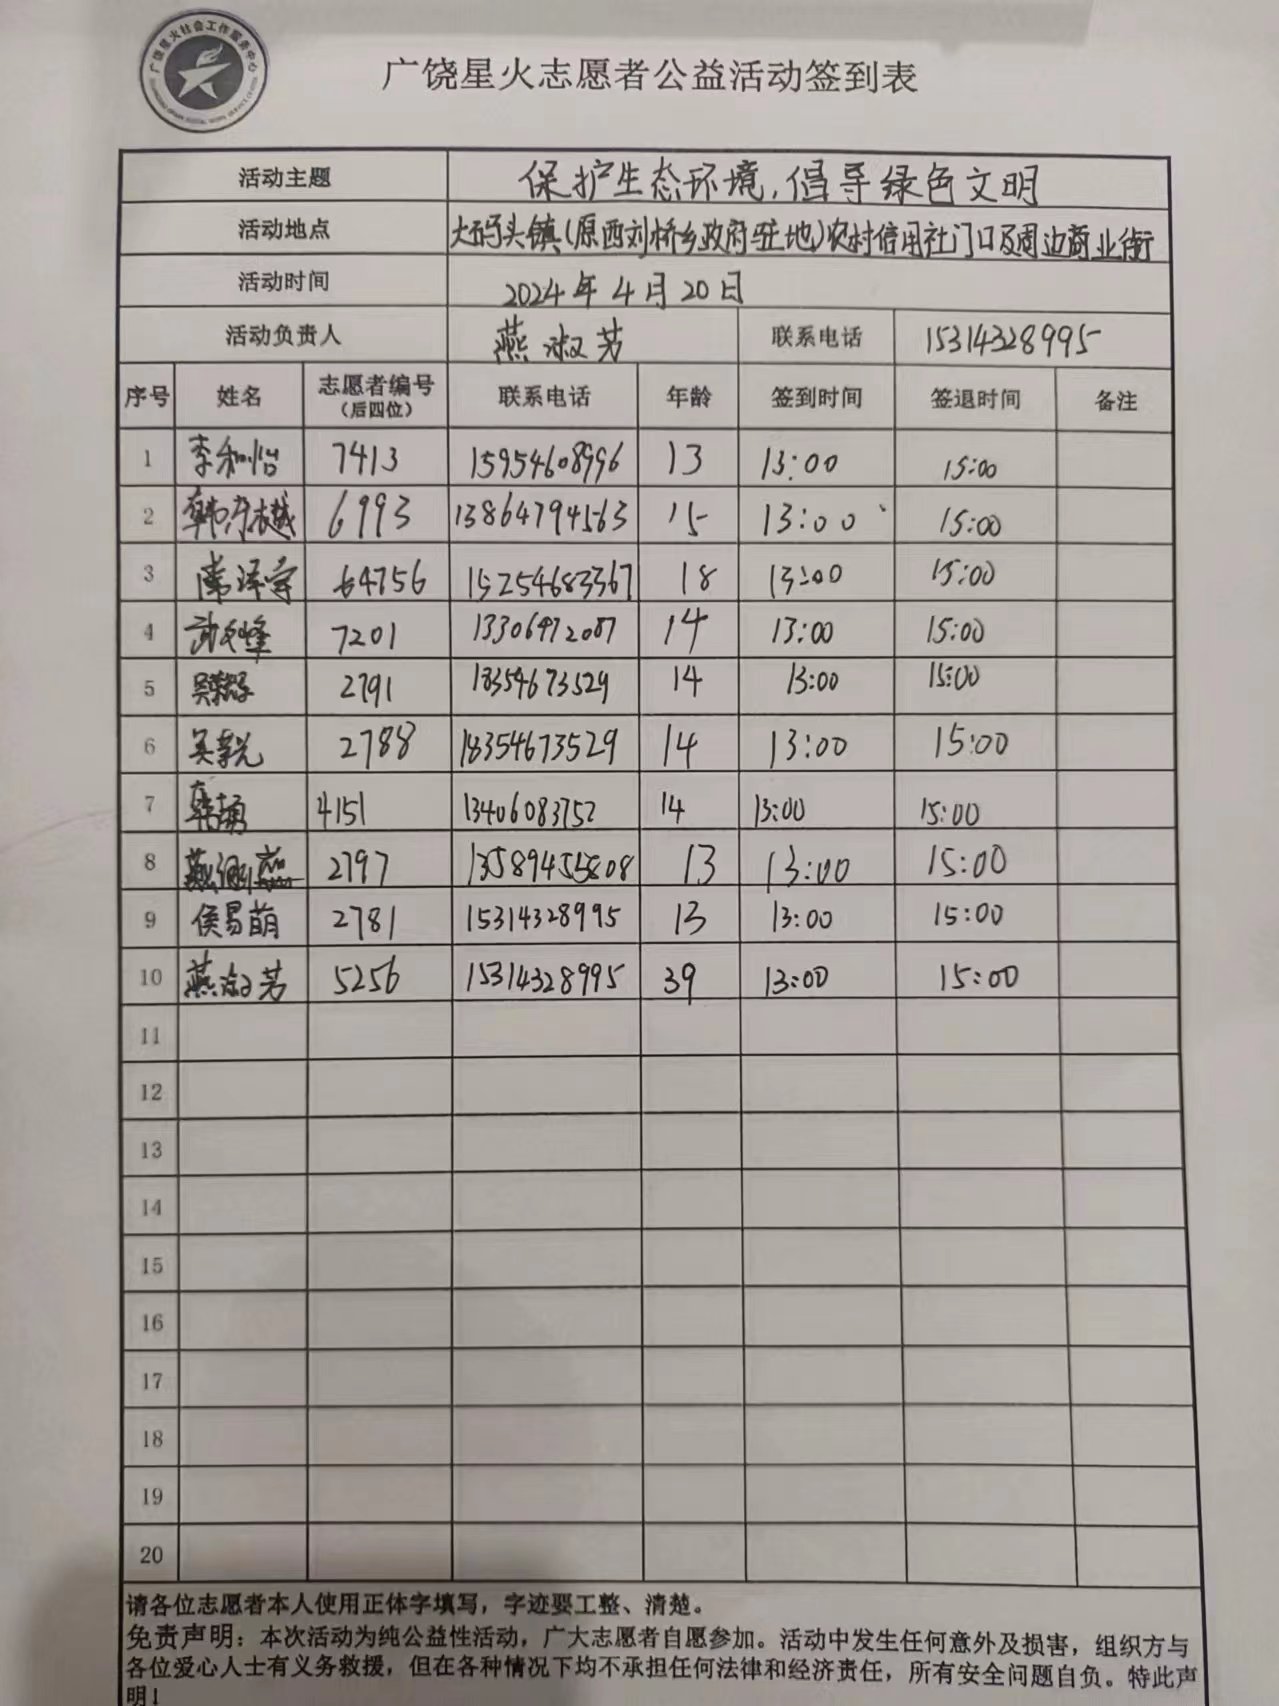 广饶星火社会工作服务中心
广饶星火志愿者公益活动签到表
活动主题 保护生态环境,倡导绿色文明
活动地点 大码头镇(原西刘桥乡政府驻地)农村信用社门口及周边商业街
活动时间 2024年4月20日
活动负责人 燕淑芳 联系电话 15314328995
序号 姓名 志愿者编号(后四位) 联系电话 年龄 签到时间 签退时间 备注
1 李和怡 7413 15954608996 13 13:00 15:00
2 6993 13864794563 15 13:00 15:00
3 64756 15254683367 18 13:00 15:00
4 7201 13306472087 14 13:00 15:00
5 2791 18354673529 14 13:00 15:00
6 2788 18354673529 14 13:00 15:00
7 4151 13406083752 14 13:00 15:00
8 2797 13 13:00 15:00
9 侯易萌 2781 15314328995 13 13:00 15:00
10 燕淑芳 5256 15314328995 39 13:00 15:00
11
12
13
14
15
16
17
18
19
20
请各位志愿者本人使用正体字填写，字迹要工整、清楚。
免责声明：本次活动为纯公益性活动，广大志愿者自愿参加。活动中发生任何意外及损害，组织方与
各位爱心人士有义务救援，但在各种情况下均不承担任何法律和经济责任，所有安全问题自负。特此声
明！